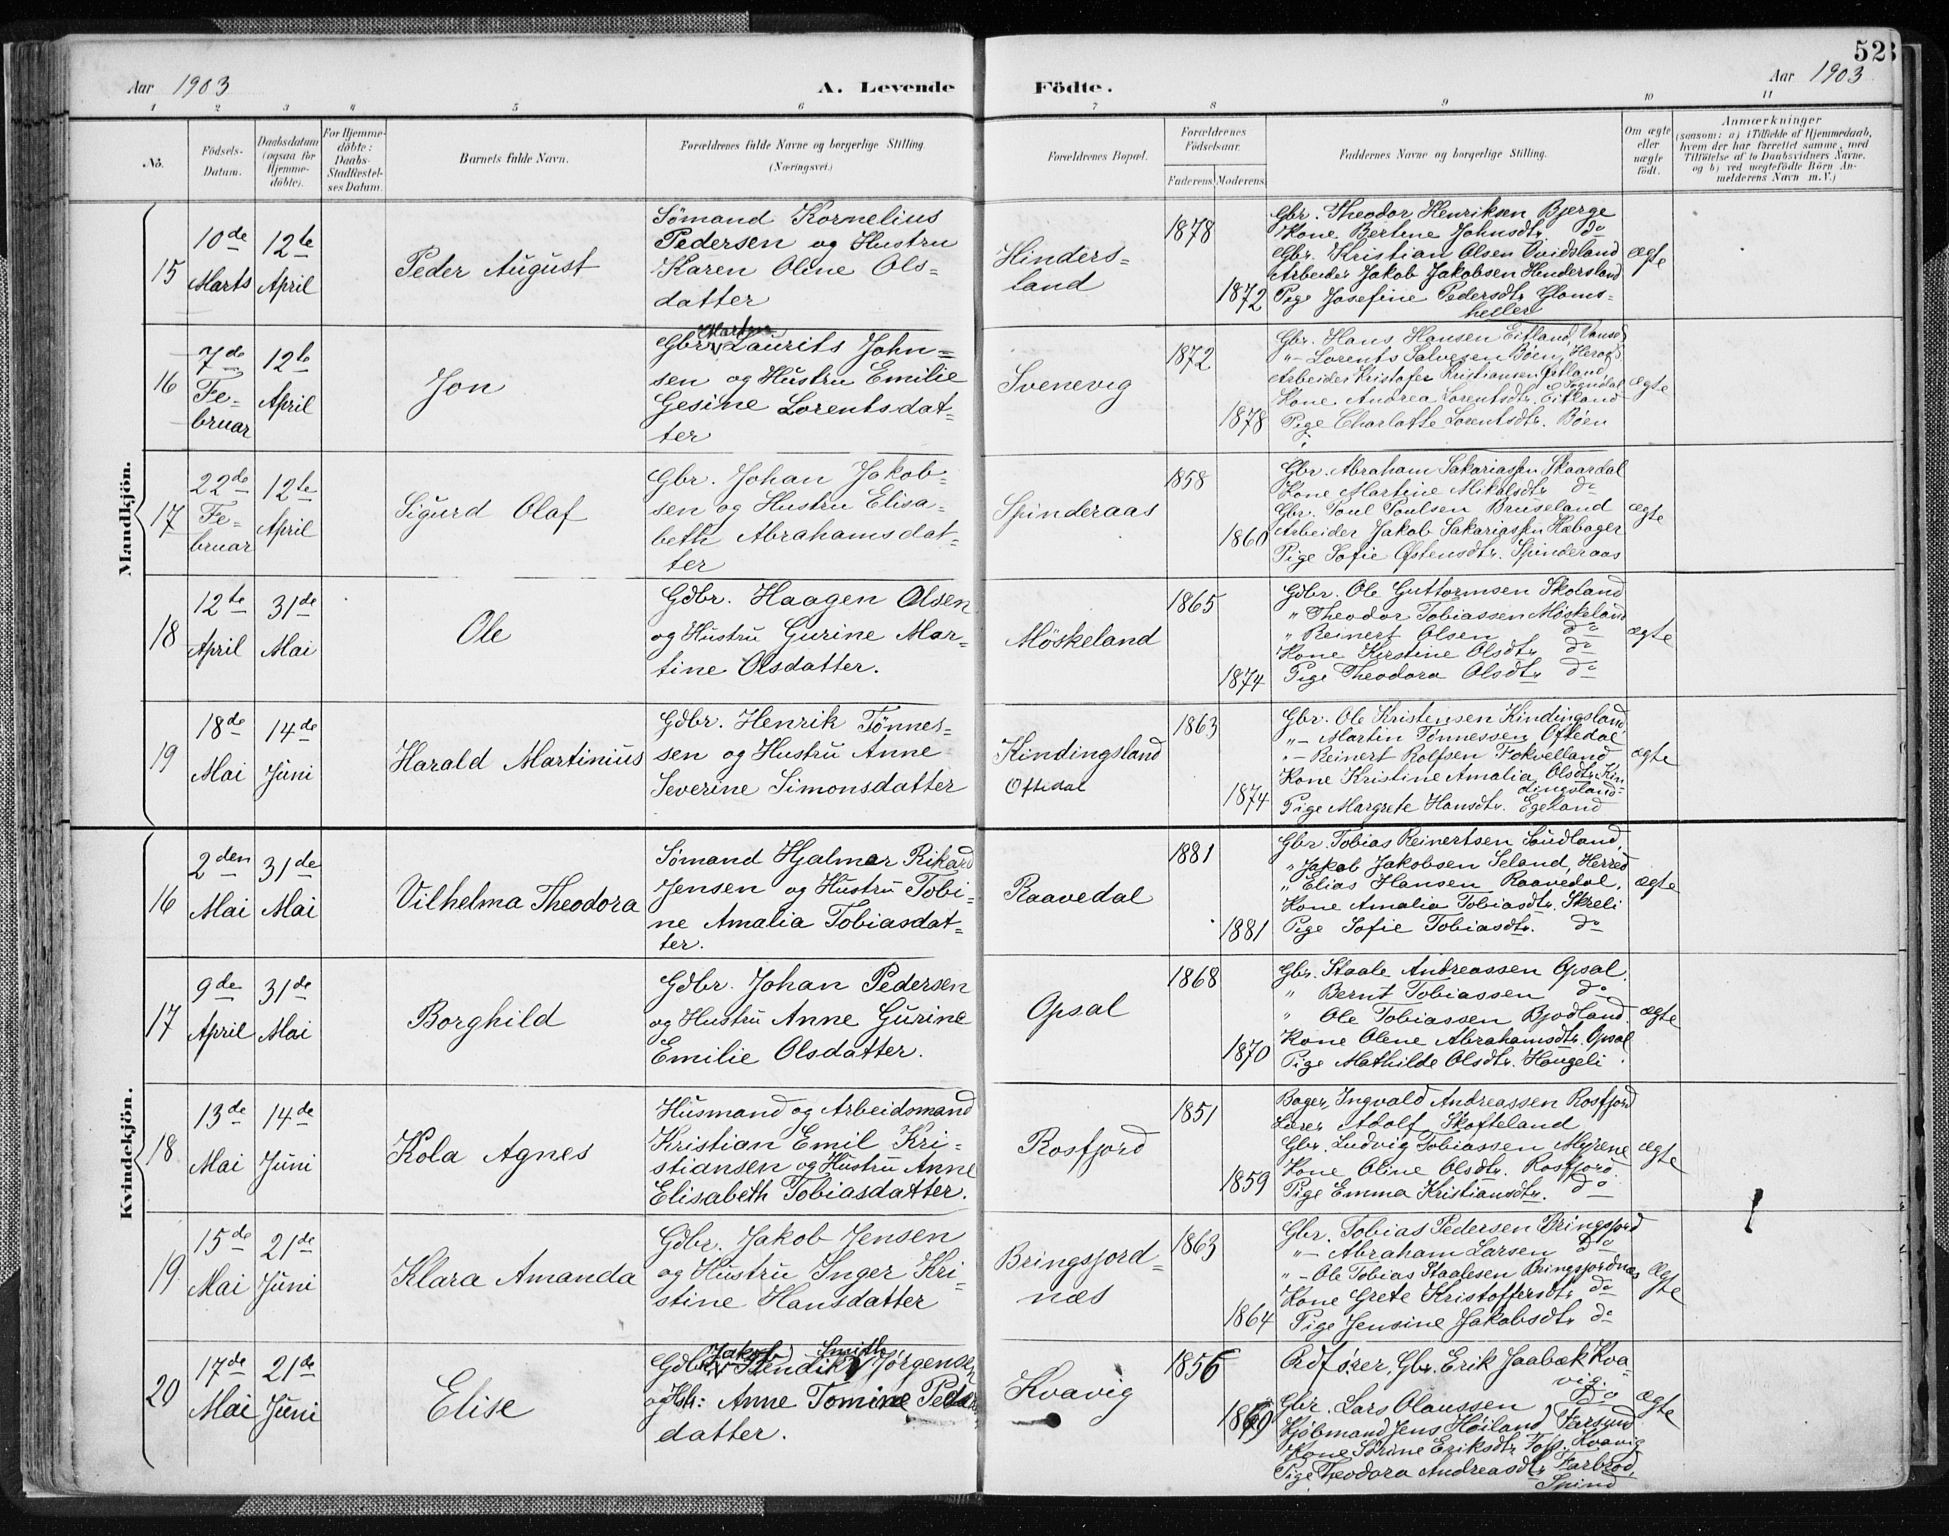 523
Aar 1903
A. Levende Födte.
Aar 1903
1 2 3 4 5 6 7 8 9 10 11
No.
Födsels-Datum.
Daabsdatum (ogsaa for Hjemme-döbte).
For Hjemme-döbte: Daabs-Stadfæstel-ses Datum.
Barnets fulde Navn.
Forældrenes fulde Navne og borgerlige Stilling. (Næringsvei.)
Forældrenes Bopæl.
Forældrenes Födselsaar.
Faderens. Moderens.
Faddernes Navne og borgerlige Stilling.
Om ægte eller uægte födt.
Anmærkninger
(saasom: a) i Tilfælde af Hjemmedaab, hvem der har forrettet samme, med Tilföielse af to Daabsvidners Navne, og b) ved uægtefödte Börn An-melderens Navn m. V.)
Mandkjön.
15
10de Marts
12te April
Peder August
Sømand Kornelius
Pedersen og Hustru
Karen Oline Ols-
datter
Hinders-
land
1878
1872
Gbr. Theodor Henriksen Bjerge
Kone Bertine Johnsdtr. do
Gbr. Kristian Olsen Qvidsland
Arbeider Jakob Jakobsen Hindersland
Pige Josefine Pedersdtr. Gloms-
heller
ægte
16
7de Fe-
bruar
12te April
Jon
Gbr. Martin Laurits John-
sen og Hustru Emilie
Gesine Lorentsdat-
ter
Svenevig
1872
1878
Gbr. Hans Hansen Eitland, Vanse
"- Lorents Salvesen Bøen, Herad
Arbeider Kristofer Kristiansen
Kone Andrea Lorentsdtr. Eitland
Pige Charlotte Lorentsdtr. Bøen
ægte
17
22de Fe-
bruar
12te April
Sigurd Olaf
Gbr. Johan Jakob-
sen og Hustru Elisa-
beth Abrahamsdat-
ter
Spinderaas
1858
1860
Gbr. Abraham Sakariassen Skaardal
Kone Martine Mikalsdtr. do
Gbr. Poul Poulsen Bruseland
Arbeider Jakob Sakariassen Hæbager
Pige Sofie Østensdtr. Spinderaas
ægte
18
12te April
31de Mai
Ole
Gdbr. Haagen Olsen
og Hustru Gurine Mar-
tine Olsdatter.
Møskeland
1865
1874
Gdbr. Ole Guttormsen Skoland
" Theodor Tobiassen Møskeland
" Reinert Olsen do
Kone Kirstine Olsdtr. do
Pige Theodora Olsdtr. do
ægte
19
18de Mai
14de Juni
Harald Martinius
Gdbr. Henrik Tønnes-
sen og Hustru Anne
Severine Simonsdatter
Kindingsland
Oftedal
1863
1874
Gbr. Ole Kristensen Kindingsland
"- Martin Tønnessen Oftedal
"- Reinert Rolfsen Fokvelland
Kone Kristine Amalia Olsdtr. Kin-
dingsland
Pige Margrete Hansdtr. Egeland
ægte
Kvindekjön.
16
2den Mai
31de Mai
Vilhelma Theodora
Sømand Hjalmar Rikard
Jensen og Hustru Tobi-
ne Amalia Tobiasdat-
ter.
Raavedal
1881
1881
Gbr. Tobias Reinertsen Sudland,
" Jakob Jakobsen Seland, Herred
" Elias Hansen Raavedal,
Kone Amalia Tobiasdtr. Skreli
Pige Sofie Tobiasdtr. do
ægte
17
9de April
31de Mai
Borghild
Gdbr. Johan Pedersen
og Hustru Anne Gurine
Emilie Olsdatter.
Opsal
1868
1870
Gbr. Staale Andreassen Opsal.
" Bernt Tobiassen do
" Ole Tobiassen Bjodland
Kone Olene Abrahamsdtr. Opsal
Pige Mathilde Olsdtr. Haugeli
ægte
18
13de Mai
14de Juni
Kola Agnes
Husmand og Arbeidsmand
Kristian Emil Kri-
stiansen og Hustru Anne
Elisabeth Tobiasdatter.
Rosfjord
1851
1859
Bager Ingvald Andreassen Rosfjord
Lærer Adolf Skofteland
Gbr. Ludvig Tobiassen Myrene
Kone Oline Olsdtr. Rosfjord
Pige Emma Kristiansdtr. do
ægte
19
15de Mai
21de Juni
Klara Amanda
Gdbr. Jakob Jensen
og Hustru Inger Kri-
stine Hansdatter
Bringsjord-
næs
1863
1864
Gbr. Tobias Pedersen Bringsjord
"- Abraham Larsen do
"- Ole Tobias Staalesen Bringsjordnæs
Kone Grete Kristoffersdtr. do
Pige Jensine Jakobsdtr. do
ægte
20
17de Mai
21de Juni
Elise
Gdbr. Jakob Hendik Smith Jørgensen
og Hstr: Anne Tomine Peders-
datter.
Kvavig
1856
Ordfører, Gbr. Erik Jaabæk Kva-
vig.
Gbr. Lars Olaussen do
Kjøbmand Jens Høiland, Farsund
Kone Sørine Eriksdtr. Kvavig
Pige Theodora Andreasdtr. Farbrod,
Spind
ægte